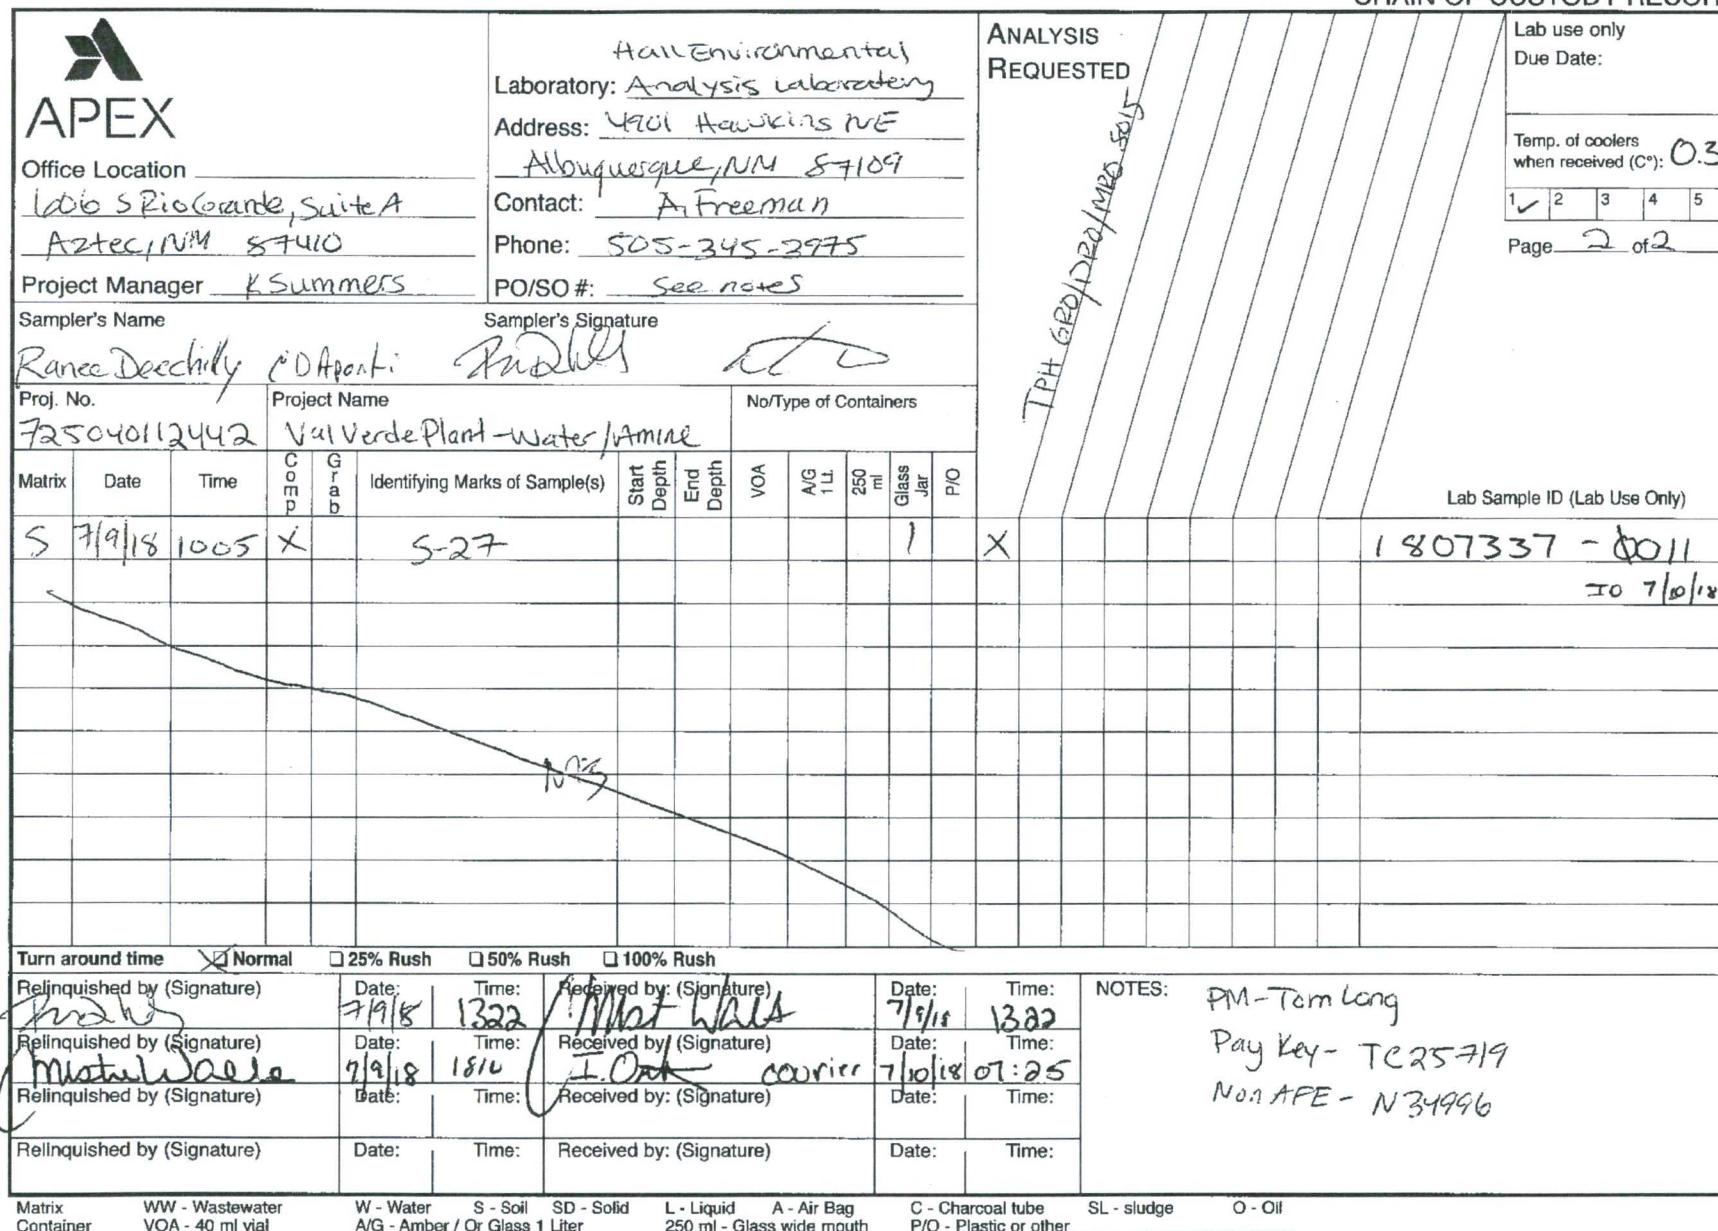 CHAIN OF CUSTODY RECORD
APEX
Office Location
606 S Rio Grande, Suite A
Aztec, NM 87410
Project Manager K Summers
Hall Environmental
Laboratory: Analysis Laboratory
Address: 4901 Hawkins NE
Albuquerque, NM 87109
Contact: A. Freeman
Phone: 505-345-3975
PO/SO #: See notes
ANALYSIS
REQUESTED
TPH GRO/DRO/MRO 8015
Lab use only
Due Date:
Temp. of coolers
when received (C°): 0.3
1 ✓ 2 3 4 5
Page 2 of 2
Sampler's Name Sampler's Signature
Ranee Deechilly C D Aponti
Proj. No. Project Name No/Type of Containers
725040112442 Val Verde Plant - Water/Amine
Matrix Date Time Comp Grab Identifying Marks of Sample(s) Start Depth End Depth VOA A/G 1 Lt. 250 ml Glass Jar P/O Lab Sample ID (Lab Use Only)
S 7/9/18 1005 X S-27 1 X 1807337 - 0011
IO 7/10/18
Turn around time ☒ Normal ☐ 25% Rush ☐ 50% Rush ☐ 100% Rush
Relinquished by (Signature) Date: Time: Received by: (Signature) Date: Time:
7/9/18 1322 7/9/18 1322
Relinquished by (Signature) Date: Time: Received by: (Signature) Date: Time:
7/9/18 1816 courier 7/10/18 07:25
Relinquished by (Signature) Date: Time: Received by: (Signature) Date: Time:
Relinquished by (Signature) Date: Time: Received by: (Signature) Date: Time:
NOTES: PM - Tom Long
Pay Key - TC25719
Non AFE - N34996
Matrix WW - Wastewater W - Water S - Soil SD - Solid L - Liquid A - Air Bag C - Charcoal tube SL - sludge O - Oil
Container VOA - 40 ml vial A/G - Amber / Or Glass 1 Liter 250 ml - Glass wide mouth P/O - Plastic or other